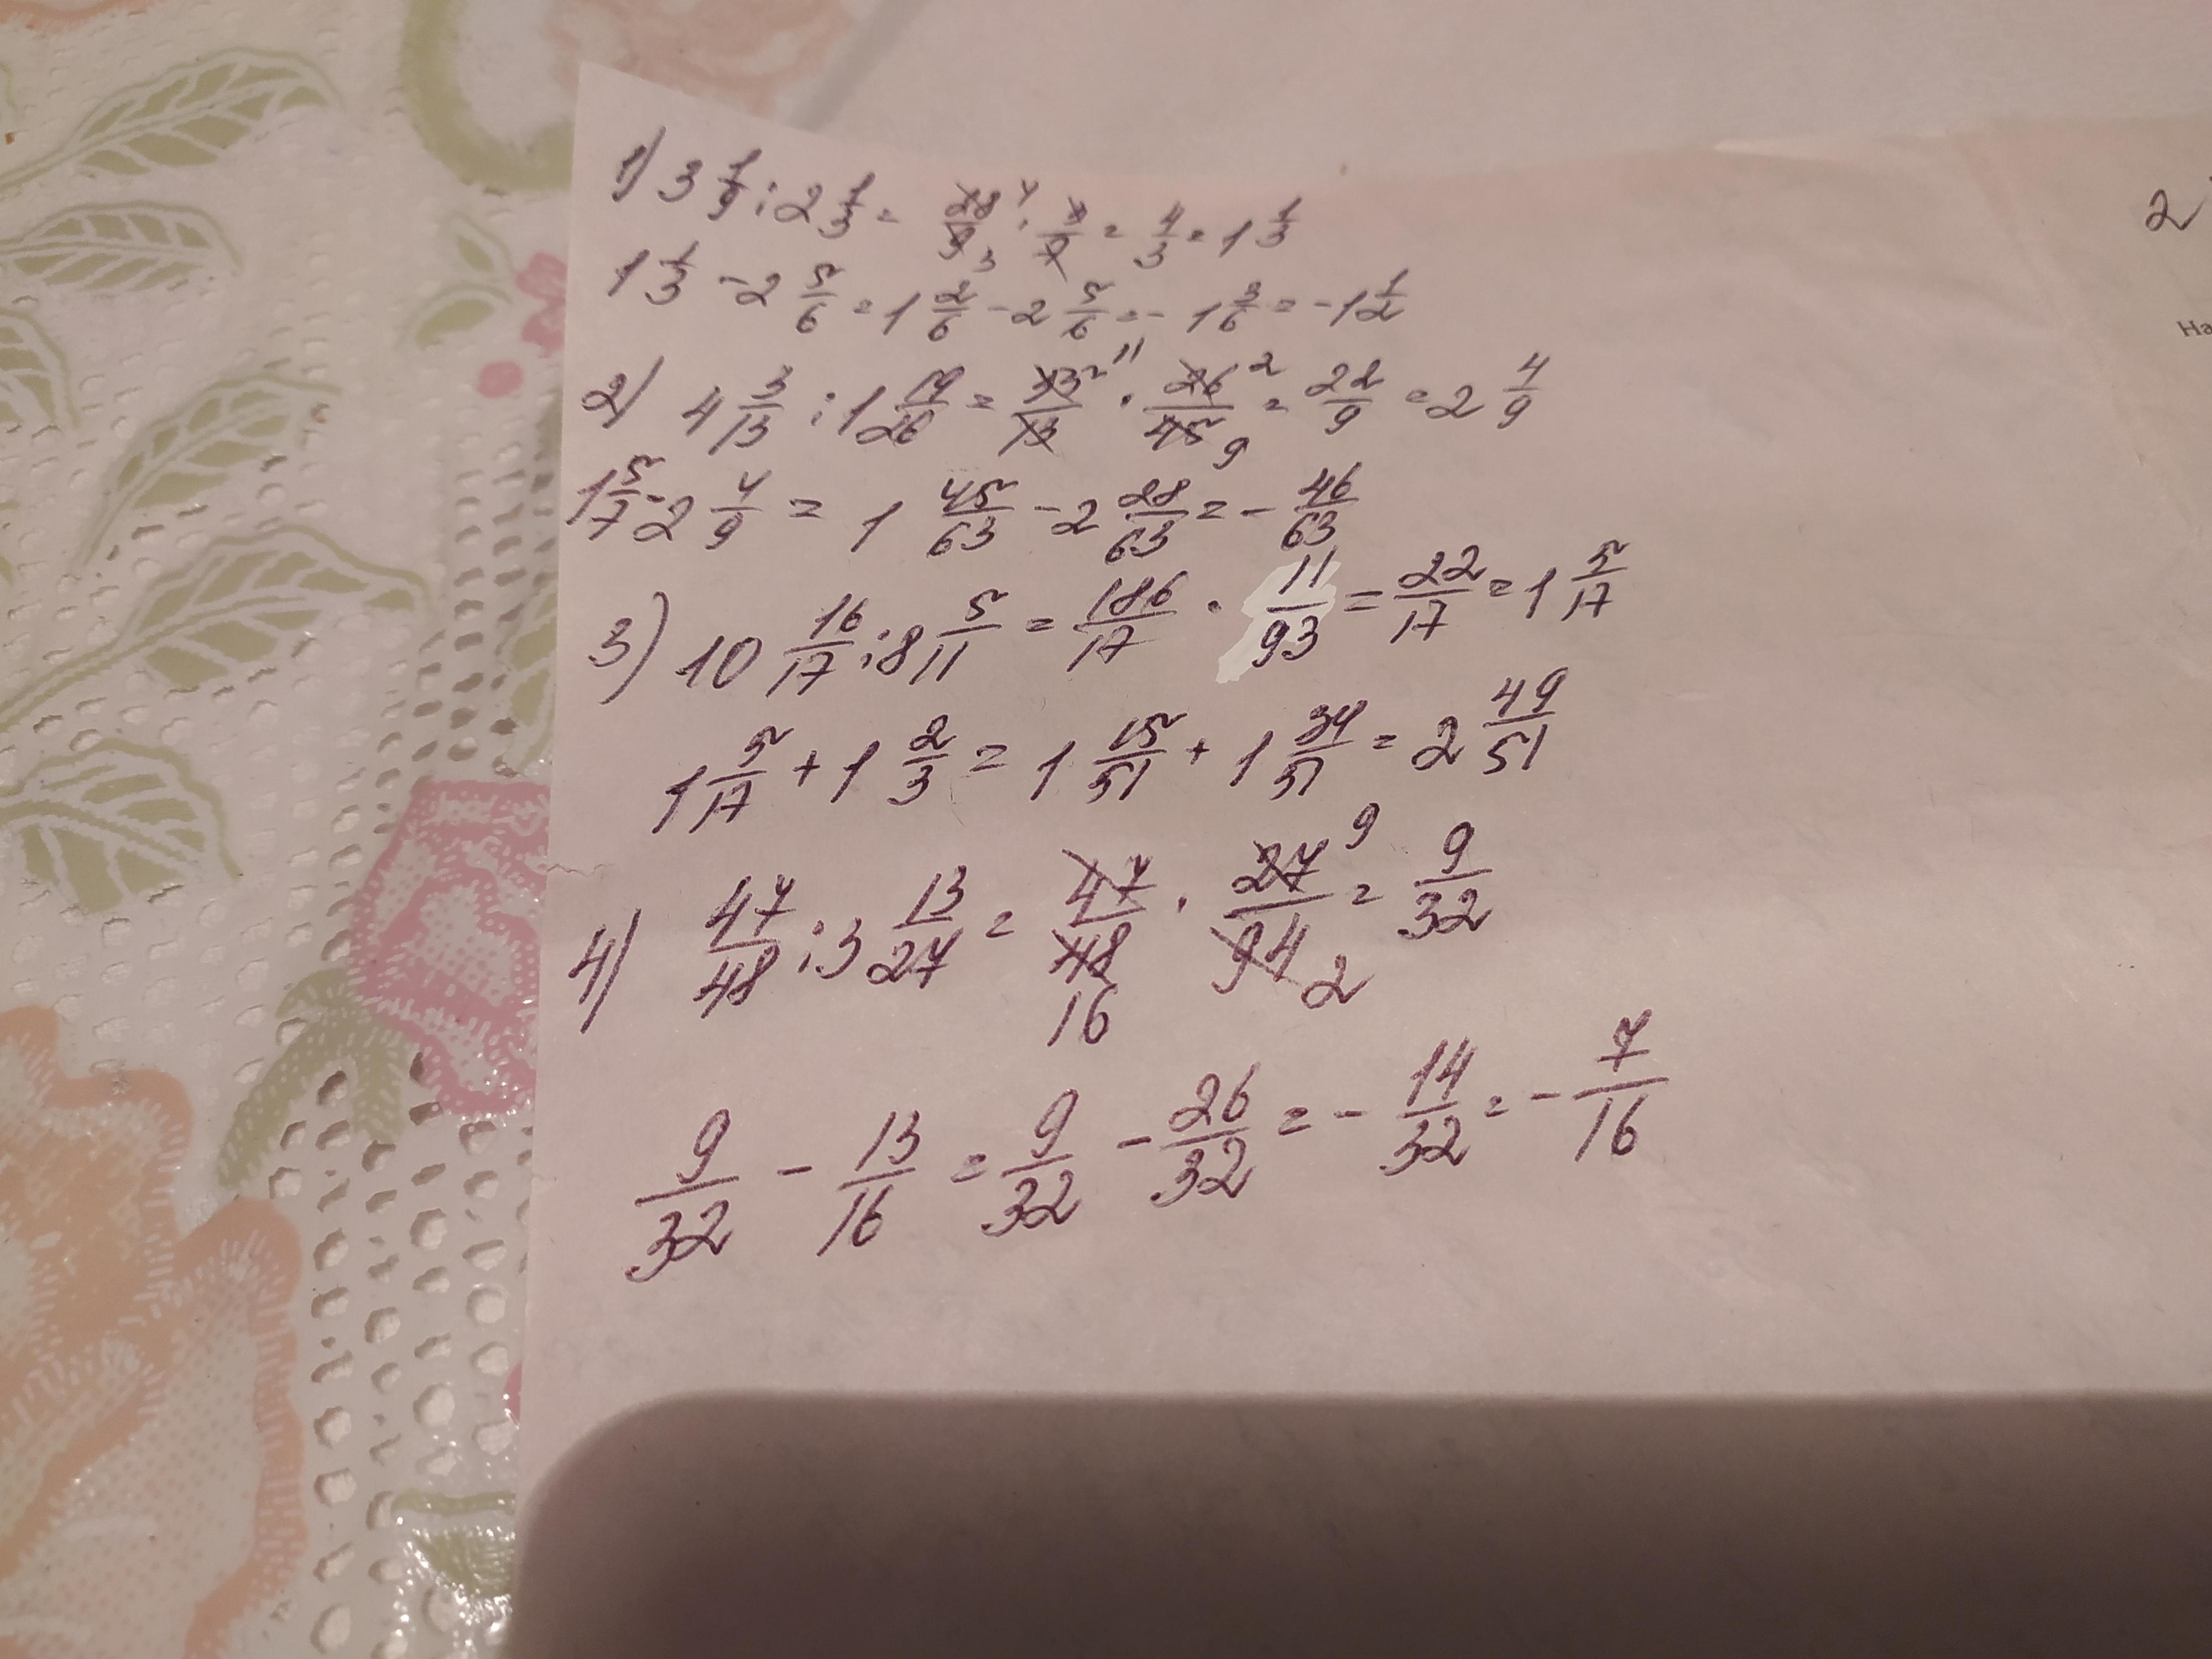 1) 3 1/9 : 2 1/3 = 28/9 · 3/7 = 4/3 = 1 1/3
1 1/3 - 2 5/6 = 1 2/6 - 2 5/6 = - 1 3/6 = - 1 1/2
2) 4 3/13 : 1 19/26 = 55/13 · 26/45 = 22/9 = 2 4/9
1 5/7 - 2 4/9 = 1 45/63 - 2 28/63 = - 46/63
3) 10 16/17 : 8 5/11 = 186/17 · 11/93 = 22/17 = 1 5/17
1 5/17 + 1 2/3 = 1 15/51 + 1 34/51 = 2 49/51
4) 47/48 : 3 13/27 = 47/48 · 27/94 = 9/32
9/32 - 13/16 = 9/32 - 26/32 = - 14/32 = - 7/16
2
На